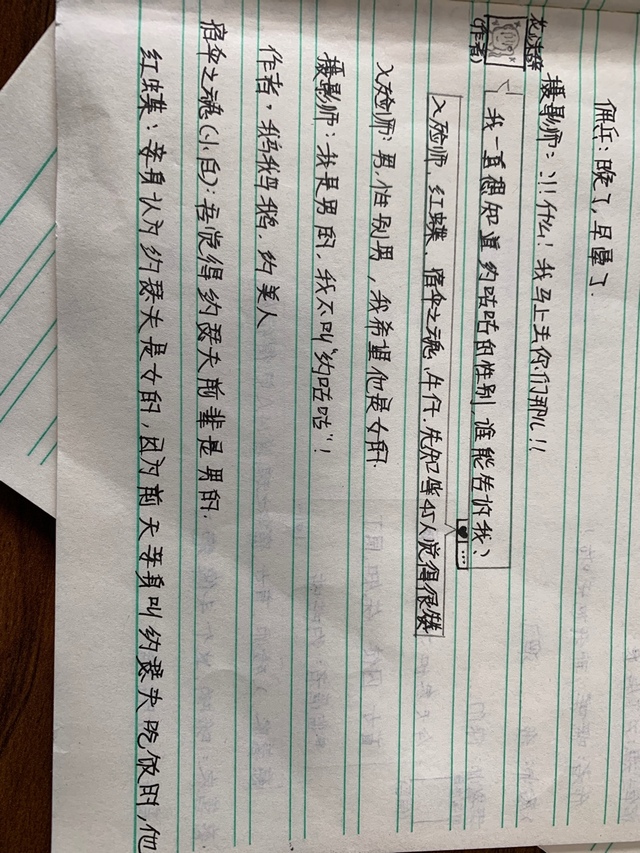 佣兵:晚了,早晕了.
摄影师:!!!什么!我马上去你们那儿!!
(作者)
我一直想知道约咕咕的性别,谁能告诉我、
入殓师、红蝶、宿伞之魂、牛仔、先知等45人觉得很赞
入殓师:男,性别男,我希望他是女的.
摄影师:我是男的,我不叫“约咕咕”!
作者:鹅鹅鹅,约美人
宿伞之魂(小白):吾觉得约瑟夫前辈是男的.
红蝶:妾身认为约瑟夫是女的,因为前天妾身叫约瑟夫吃饭时,他